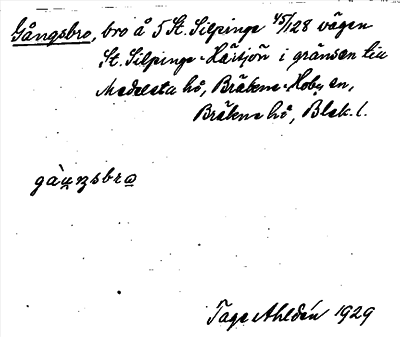 Gångsbro, bro å 5 St. Silpinge 45/128 vägen
St. Silpinge-Härsjön i gränsen till
Medelsta hd, Bräkne-Hoby sn,
Bräkne hd, Blek. l.
Tage Ahldén 1929